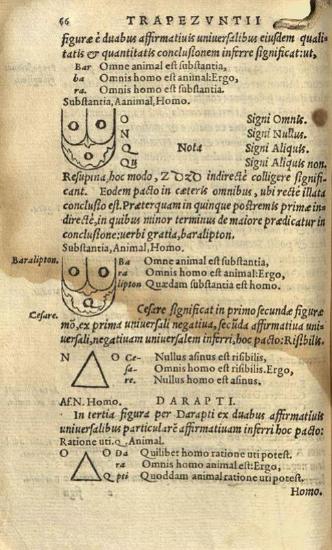 56 TRAPEZVNTII
figuræ è duabus affirmatiuis uniuersalibus eiusdem quali-
tatis & quantitatis conclusionem inferre significat: ut,
Bar Omne animal est substantia,
ba Omnis homo est animal: Ergo,
ra. Omnis homo est substantia.
Substantia, Aanimal, Homo.
O Signi Omnis.
N Signi Nullus.
Q Nota Signi Aliquis.
Qu Signi Aliquis non.
Resupina, hoc modo, indirectè colligere signifi-
cant. Eodem pacto in cæteris omnibus, ubi rectè illata
conclusio est. Præterquam in quinque postremis primæ in-
directè, in quibus minor terminus de maiore prædicatur in
conclusione: uerbi gratia, baralipton.
Substantia, Animal, Homo.
Baralipton. Ba Omne animal est substantia,
ra Omnis homo est animal: Ergo,
lipton Quædam substantia est homo.
Cesare significat in primo secundæ figuræ
Cesare. mō, ex prima uniuersali negatiua, secūda affirmatiua uni-
uersali, negatiuam uniuersalem inferri, hoc pacto: Risibilis.
N O Ce- Nullus asinus est risibilis,
sa- Omnis homo est risibilis. Ergo,
re. Nullus homo est asinus,
Asn. Homo. DARAPTI.
In tertia figura per Darapti ex duabus affirmatiuis
uniuersalibus particularē affirmatiuam inferri hoc pacto:
Ratione uti. Q Animal.
O O Da Quilibet homo ratione uti potest.
ra Omnis homo animal est: Ergo,
Q pti Quoddam animal ratione uti potest.
Homo.